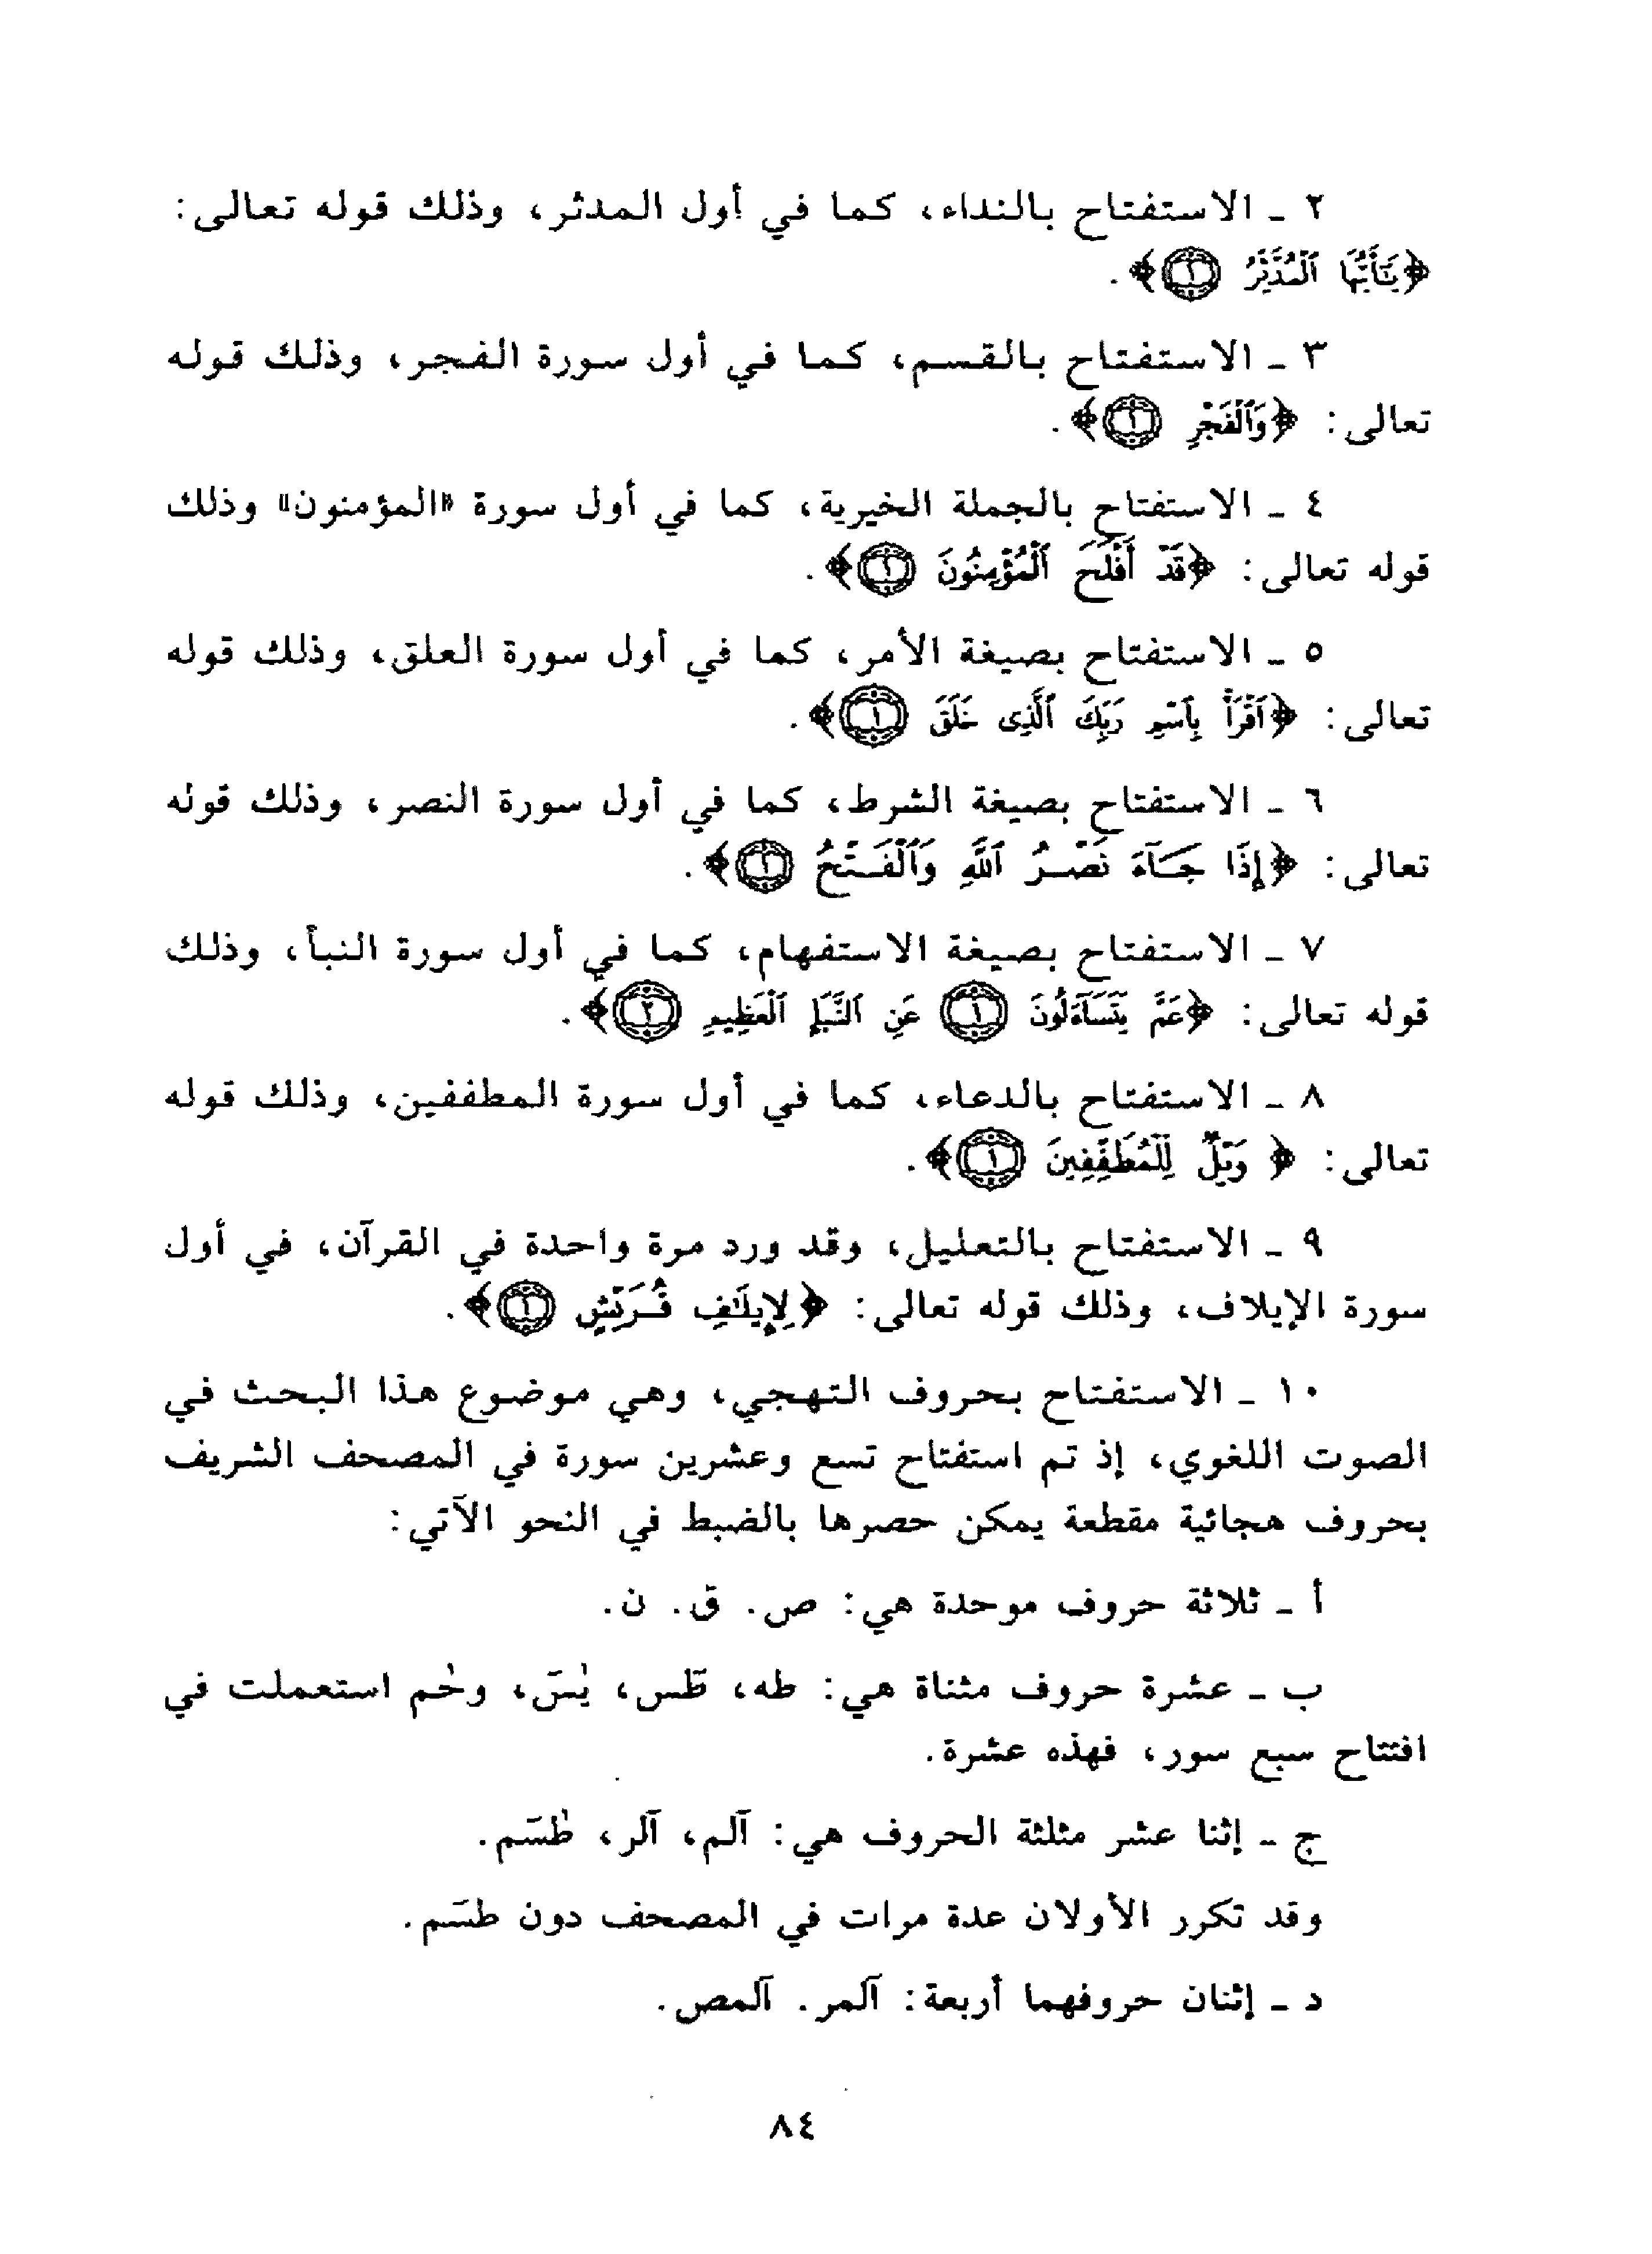 ٢ ـ الاستفتاح بالنداء، كما في أول المدثر، وذلك قوله تعالى:
﴿يَٰٓأَيُّهَا ٱلْمُدَّثِّرُ ١﴾.
٣ ـ الاستفتاح بالقسم، كما في أول سورة الفجر، وذلك قوله
تعالى: ﴿وَٱلْفَجْرِ ١﴾.
٤ ـ الاستفتاح بالجملة الخيرية، كما في أول سورة «المؤمنون» وذلك
قوله تعالى: ﴿قَدْ أَفْلَحَ ٱلْمُؤْمِنُونَ ١﴾.
٥ ـ الاستفتاح بصيغة الأمر، كما في أول سورة العلق، وذلك قوله
تعالى: ﴿ٱقْرَأْ بِٱسْمِ رَبِّكَ ٱلَّذِى خَلَقَ ١﴾.
٦ ـ الاستفتاح بصيغة الشرط، كما في أول سورة النصر، وذلك قوله
تعالى: ﴿إِذَا جَآءَ نَصْرُ ٱللَّهِ وَٱلْفَتْحُ ١﴾.
٧ ـ الاستفتاح بصيغة الاستفهام، كما في أول سورة النبأ، وذلك
قوله تعالى: ﴿عَمَّ يَتَسَآءَلُونَ ١ عَنِ ٱلنَّبَإِ ٱلْعَظِيمِ ٢﴾.
٨ ـ الاستفتاح بالدعاء، كما في أول سورة المطففين، وذلك قوله
تعالى: ﴿وَيْلٌ لِّلْمُطَفِّفِينَ ١﴾.
٩ ـ الاستفتاح بالتعليل، وقد ورد مرة واحدة في القرآن، في أول
سورة الإيلاف، وذلك قوله تعالى: ﴿لِإِيلَٰفِ قُرَيْشٍ ١﴾.
١٠ ـ الاستفتاح بحروف التهجي، وهي موضوع هذا البحث في
الصوت اللغوي، إذ تم استفتاح تسع وعشرين سورة في المصحف الشريف
بحروف هجائية مقطعة يمكن حصرها بالضبط في النحو الآتي:
أ ـ ثلاثة حروف موحدة هي: ص. ق. ن.
ب ـ عشرة حروف مثناة هي: طه، طٓس، يٰسٓ، وحٰم استعملت في
افتتاح سبع سور، فهذه عشرة.
ج ـ إثنا عشر مثلثة الحروف هي: آلم، آلر، طٰسٓم.
وقد تكرر الأولان عدة مرات في المصحف دون طسٓم.
د ـ إثنان حروفهما أربعة: آلمر. آلمص.
٨٤